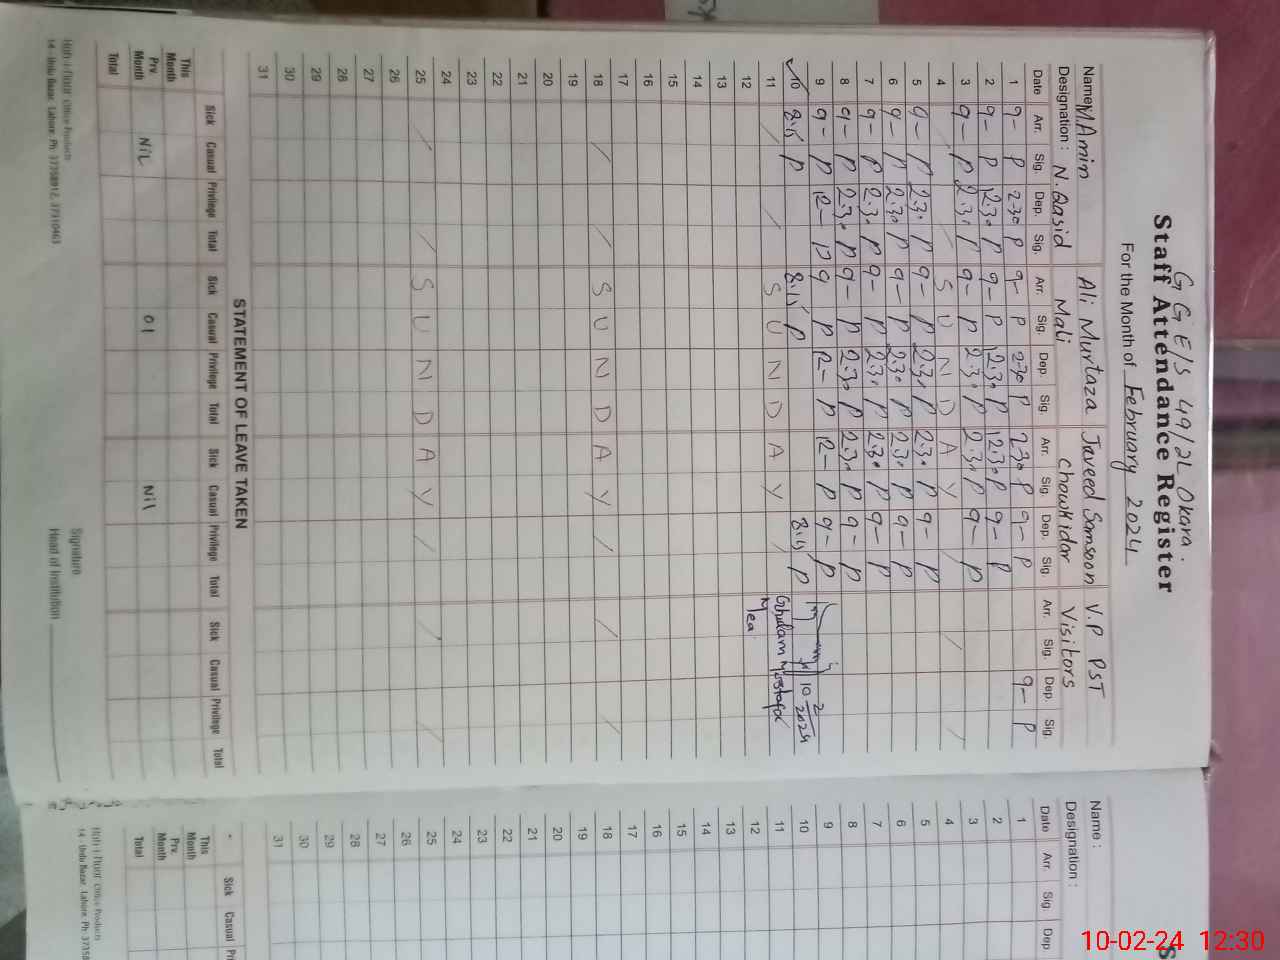 G G E/S 49/2L Okara.
Staff Attendance Register
For the Month of February 2024
Name: M.Amin Ali Murtaza Javeed Samsoon V.P PST
Designation : N. Qasid Mali Chowkidar Visitors
Date Arr. Sig. Dep. Sig. Arr. Sig. Dep. Sig. Arr. Sig. Dep. Sig. Arr. Sig. Dep. Sig.
1 9- P 2.30 P 9- P 2.30 P 2.30 P 9- P 9- P
2 9- P 12.30 P 9- P 12.30 P 12.30 P 9- P
3 9- P 2.30 P 9- P 2.30 P 2.30 P 9- P
4 S U N D A Y
5 9- P 2.30 P 9- P 2.30 P 2.30 P 9- P
6 9- P 2.30 P 9- P 2.30 P 2.30 P 9- P
7 9- P 2.30 P 9- P 2.30 P 2.30 P 9- P
8 9- P 2.30 P 9- P 2.30 P 2.30 P 9- P
9 9- P 12- P 9 P 12- P 12- P 9- P
10 8.15 P 8.15 P 8.15 P 10 2/2024
11 S U N D A Y Ghulam Mustafa
12 Mea
13
14
15
16
17
18 S U N D A Y
19
20
21
22
23
24
25 S U N D A Y
26
27
28
29
30
31
STATEMENT OF LEAVE TAKEN
Sick Casual Privilege Total Sick Casual Privilege Total Sick Casual Privilege Total Sick Casual Privilege Total
This Month
Prv. Month Nil 01 Nil
Total
Signature
Head of Institution
Office Products
14 - Urdu Bazar, Lahore. Ph: 37358912, 37310463
S
Name :
Designation :
Date Arr. Sig. Dep
1
2
3
4
5
6
7
8
9
10
11
12
13
14
15
16
17
18
19
20
21
22
23
24
25
26
27
28
29
30
31
Sick Casual Pri
This Month
Prv. Month
Total
Office Products
14 - Urdu Bazar, Lahore. Ph: 3735
10-02-24 12:30